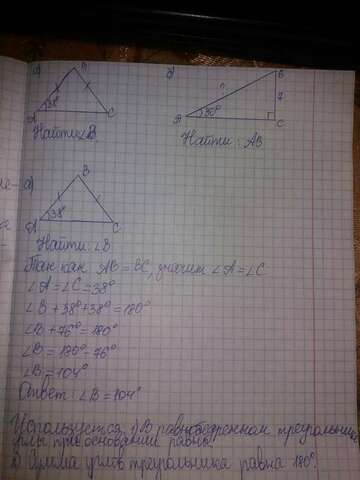 а)
B
38°
A
C
Найти ∠B
б)
B
?
7
30°
C
Найти : AB
а)
B
38°
A
C
Найти : ∠B
Так как AB = BC, значит ∠A = ∠C
∠A = ∠C = 38°
∠B + 38° + 38° = 180°
∠B + 76° = 180°
∠B = 180° - 76°
∠B = 104°
Ответ : ∠B = 104°
Используется 1) В равнобедренном треугольнике
углы при основании равны.
2) Сумма углов треугольника равна 180°.